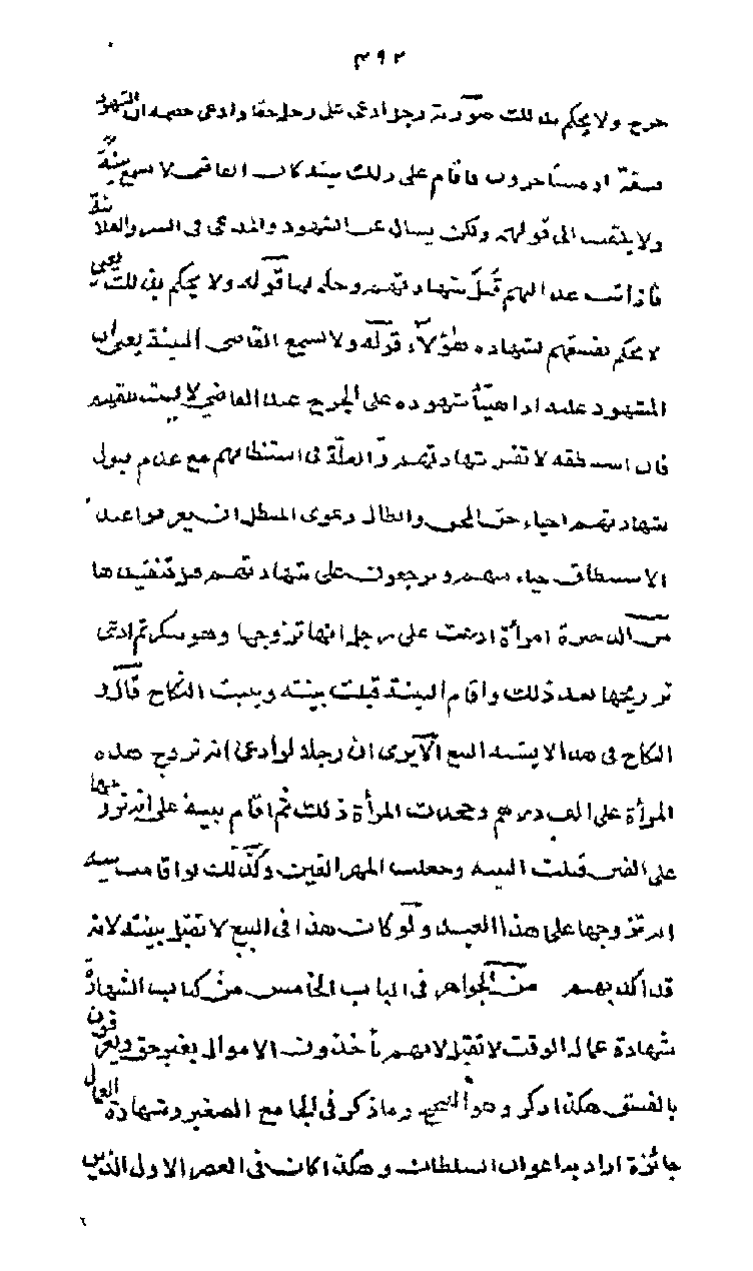 ٣٩٢
جرح ولا يحكم بذلك صورته رجل ادعى على رجل حقا وادعى خصمه ان الشهود
فسقة او مستأجرون فاقام على ذلك بينة كان القاضى لا يسمع بينة
ولا يلتفت الى قولهم ولكن يسال عن الشهود والمدعى فى السر والعلانية
فاذا ثبت عدالتهم قبل شهادتهم وحكم بها قوله ولا يحكم بذلك يعنى
لا يحكم بفسقهم لشهادة هؤلاء قوله ولا يسمع القاضى البينة يعنى ان
المشهود عليه اذا هيأ شهوده على الجرح عند القاضى لا يلتفت
فان لا تقبل شهادتهم والعلة فى استنطاقهم مع عدم قبول
شهادتهم احياء حق المحق وابطال دعوى المبطل
الاستنطاق حياء منهم ويرجعون على شهادتهم من تنفيذها
من امرأة ادعت على رجل انها تزوجها وهو ينكر ثم ادعى
تزويجها بعد ذلك واقام البينة قبلت بينته ويثبت النكاح قال و
النكاح فى هذا لا يشبه البيع الا يرى ان رجلا لو ادعى انه تزوج هذه
المرأة على الف درهم وجحدت المرأة ذلك ثم اقام بينة على انه تزوجها
على الفين قبلت البينة وجعلت المهر الفين وكذلك لو اقامت بينة
انه تزوجها على هذا العبد ولو كانت هذا فى البيع لا تقبل بينته لانه
قد اكذبهم من الجواهر فى الباب الخامس من كتاب الشهادة
شهادة عمال الوقت لا تقبل لانهم يأخذون الاموال بغير حق ويعرفون
بالفسق هكذا ذكر وهو الصحيح وما ذكر فى الجامع الصغير وشهادة العمال
جائزة اراد به اعوان السلطان وهكذا كان فى العصر الاول الذين